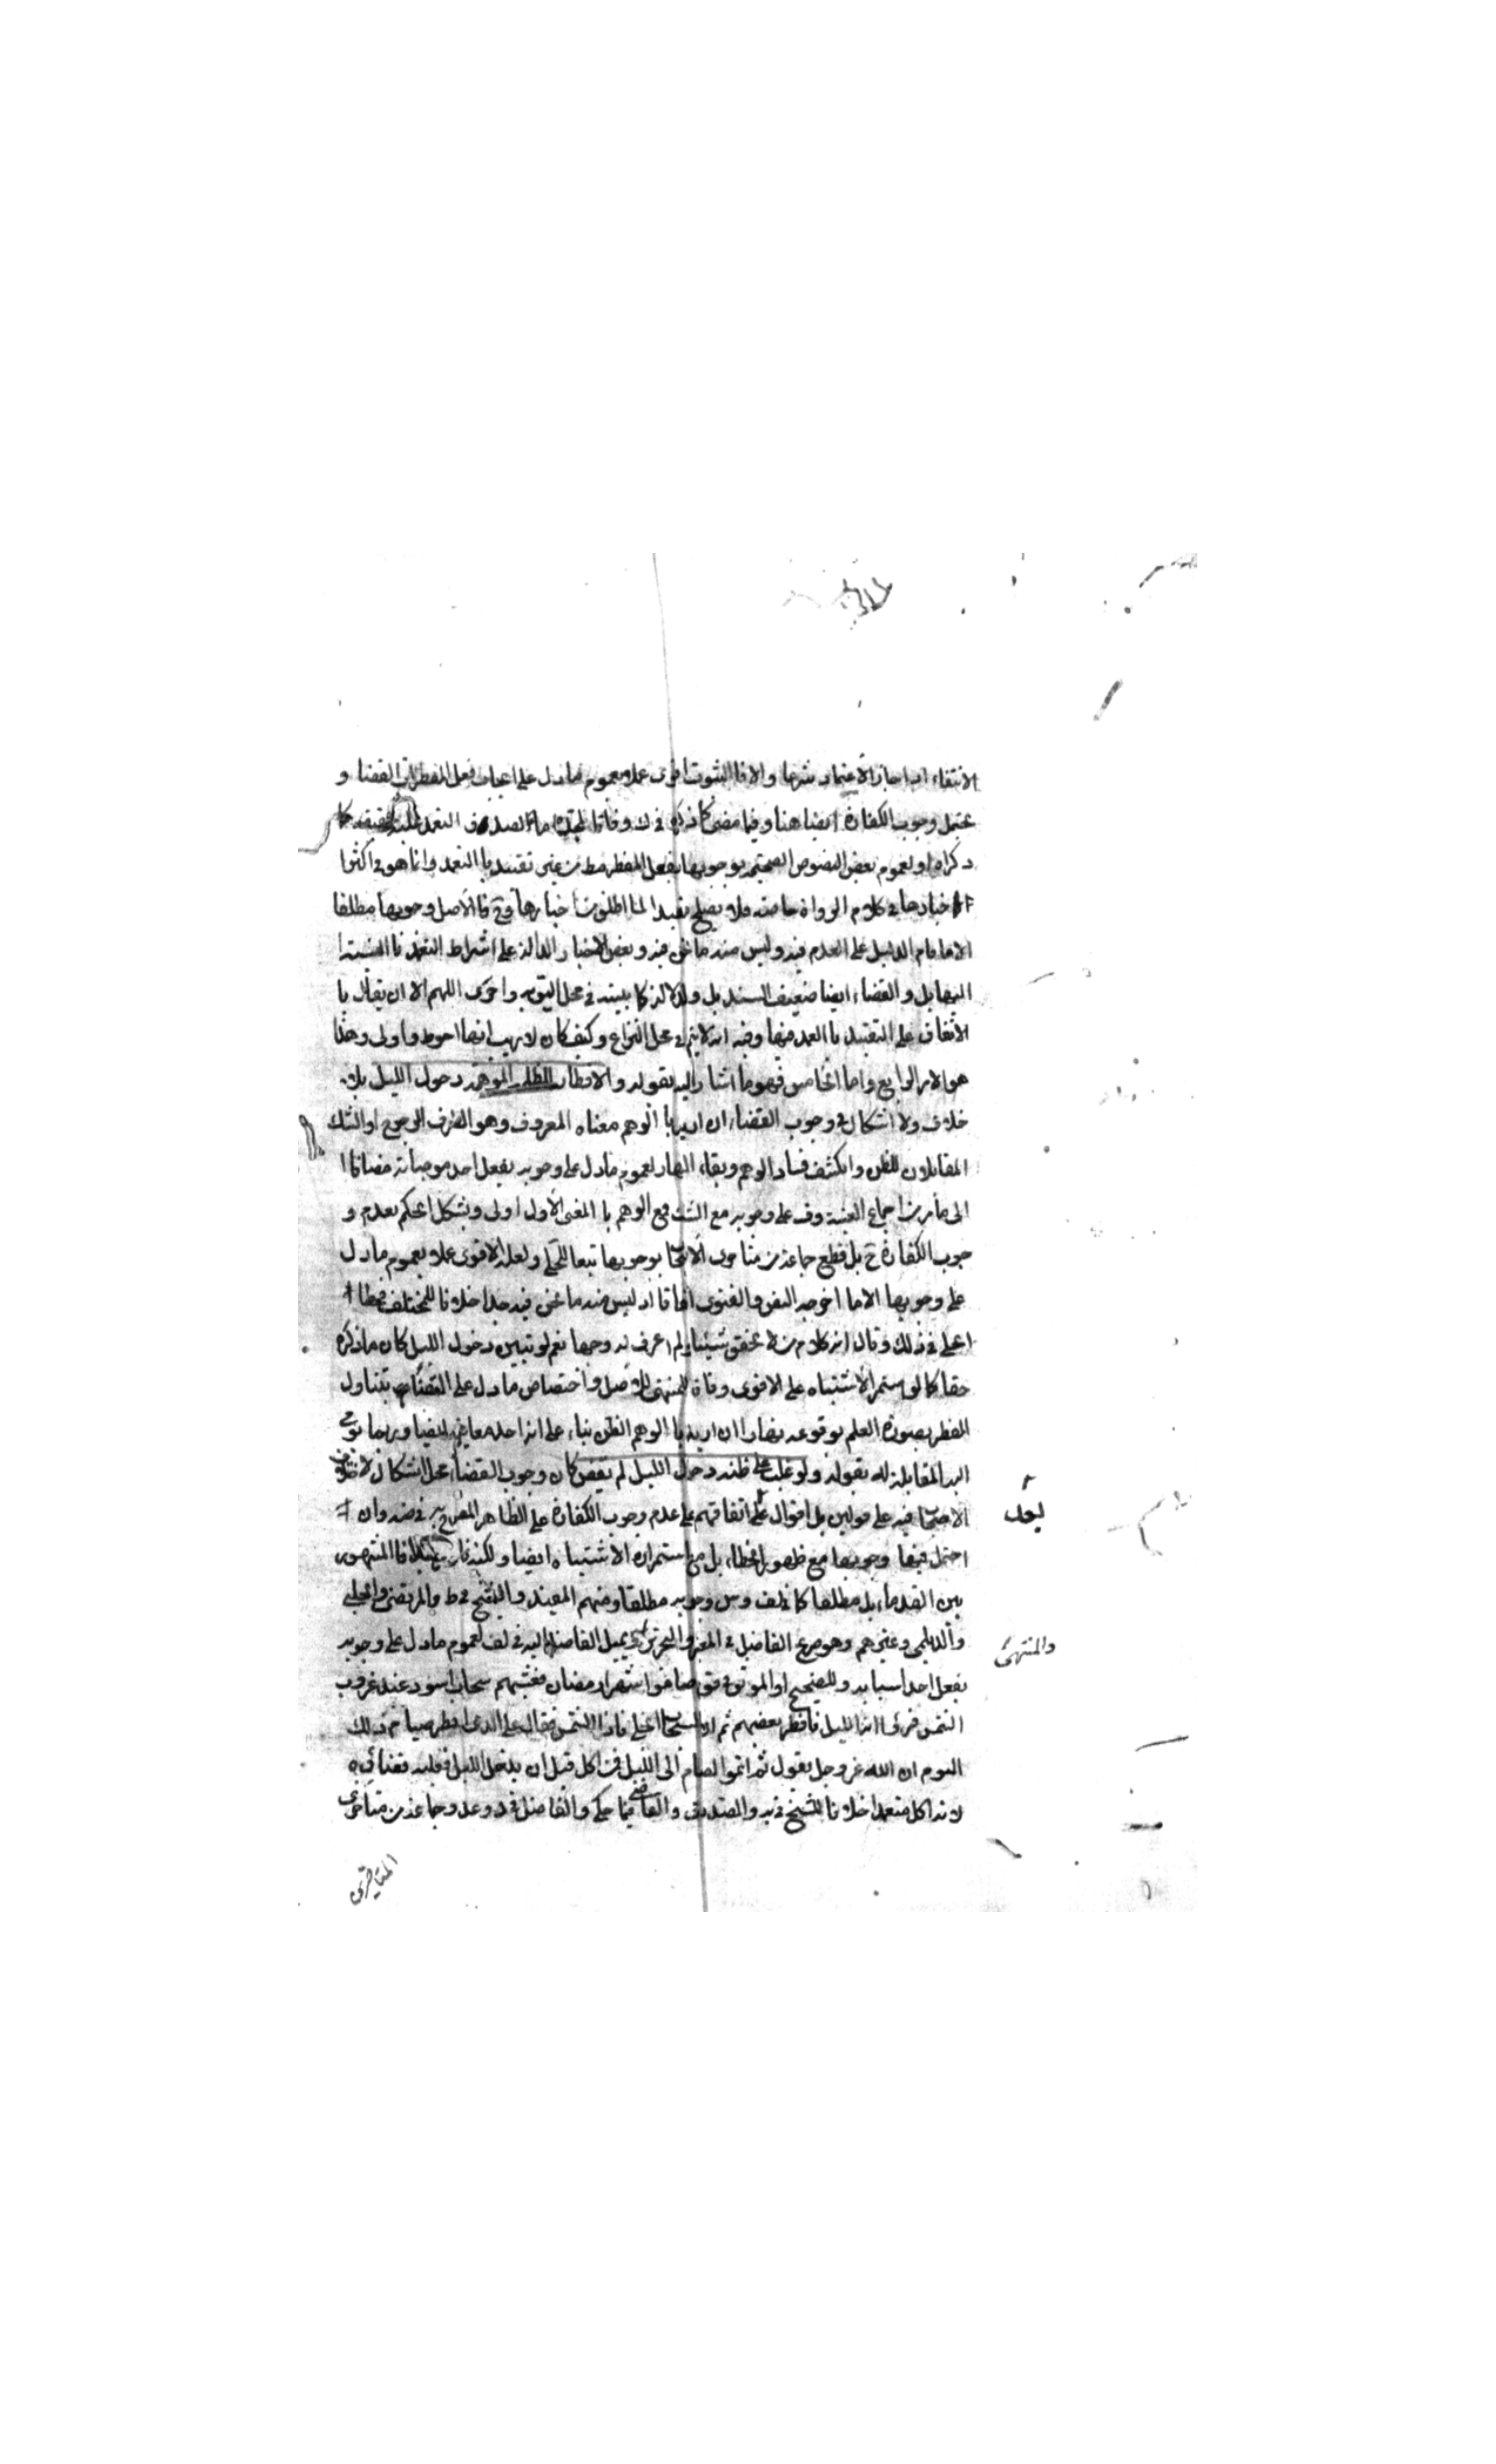 الانتفاء اذا جاز الاعتماد شرعا والا فالثبوت اقوى عملا بعموم ما دل على ايجاب فعل المفطرات القضا و
يحتمل وجوب الكفارة ايضا هنا وفيما مضى كما ذكره في ك وفاقا لجده اما لصدق التعمد عليه حقيقه كما
ذكراه او لعموم بعض النصوص الصحيحة بوجوبها بفعل المفطر مط من غير تقييد بالتعمد وانما هو في اكثر
اخبارها في كلام الرواة خاصه فلا يصلح مقيدا لما اطلق من اخبارها وح فالاصل وجوبها مطلقا
الا ما قام الدليل على العدم فيه وليس منه ما نحن فيه وبعض الاخبار الدالة على اشتراط التعمد بالنسبة
اليها بل والقضاء ايضا ضعيف السند بل والدلالة كما بينته في محل اليق به واحرى اللهم الا ان يقال با
لاتفاق على التقييد بالعمد فيها وفيه انه لا يتم في محل النزاع وكيف كان لا ريب انها احوط واولى وهذا
هو الامر الرابع واما الخامس فهو ما اشار اليه بقوله والافطار للظلمة الموهمة دخول الليل بلا
خلاف ولا اشكال في وجوب القضاء ان اريد بالوهم معناه المعروف وهو الطرف المرجوح او الشك
المقابلان للظن وانكشف فساد الوهم وبقاء النهار لعموم ما دل على وجوبه بفعل احد موجباته مضافا
الى ما مر من اجماع الغنية وف على وجوبه مع الشك فمع الوهم بالمعنى الاول اولى ويشكل الحكم بعدم و
جوب الكفارة ح بل قطع جماعة من متاخرى الاصحاب بوجوبها تبعا للحلي ولعله الاقوى عملا بعموم ما دل
على وجوبها الا ما اخرجه النص والفتوى اتفاقا اذ ليس منه ما نحن فيه جدا خلافا للمختلف فخطا
الحلي في ذلك وقال انه كلام من لا تحقق شيئا ولم اعرف له وجها نعم لو تبين دخول الليل كان ما ذكره
حقا كما لو استمر الاشتباه على الاقوى وفاقا للمنتهى للاصل واختصاص ما دل على القضاء بتناول
المفطر بصورة العلم بوقوعه نهارا ان اريد بالوهم الظن بناء على انه احد معانيه ايضا وربما يومى
اليه المقابلة له بقوله ولو غلب على ظنه دخول الليل لم يقض كان وجوب القضاء محل اشكال لاختلاف
الاصحاب فيه على قولين بل اقوال
بعد
اتفاقهم على عدم وجوب الكفارة على الظاهر المصرح به في ضه وان
احتمل فيها وجوبها مع ظهور الخطا بل مع استمرار الاشتباه ايضا ولكنه فالمشهور
بين القدماء بل مطلقا كما في لف وس وجوبه مطلقا ومنهم المفيد والشيخ في ط والمرتضى والحلبي
والديلمي وغيرهم وهو صريح الفاضل في
والمنتهى
والتحرير ويميل الفاضل اليه في لف لعموم ما دل على وجوبه
بفعل احد اسبابه وللصحيح او الموثق في قوم صاموا شهر رمضان فغشيهم سحاب اسود عند غروب
الشمس فرئوا انه الليل فافطر بعضهم ثم ان السحاب انجلى فاذا الشمس فقال على الذي افطر صيام ذلك
اليوم ان الله عز وجل يقول ثم اتموا الصيام الى الليل فمن اكل قبل ان يدخل الليل فعليه قضائه
لانه اكل متعمدا خلافا للشيخ في يه والصدوق والقاضي فيما حكي والفاضل في د وعد وجماعة من متاخرى
المتاخرى